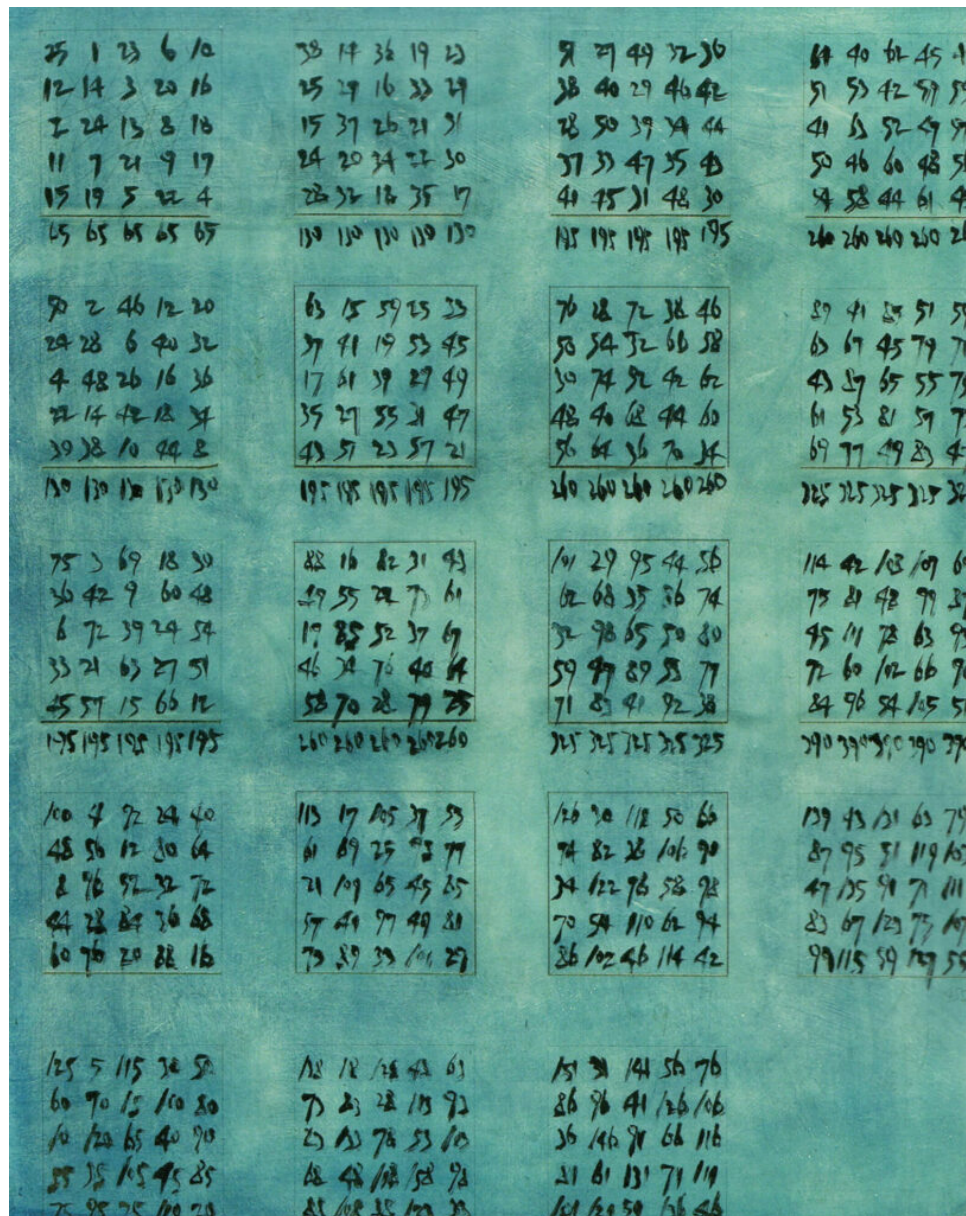 25 1 23 6 10
12 14 3 20 16
2 24 13 8 18
11 7 21 9 17
15 19 5 22 4
65 65 65 65 65
38 14 36 19 23
25 27 16 33 29
15 37 26 21 31
24 20 34 22 30
28 32 18 35 17
130 130 130 130 130
51 27 49 32 36
38 40 29 46 42
28 50 39 34 44
37 33 47 35 43
41 45 31 48 30
195 195 195 195 195
64 40 62 45
51 53 42 59
41 63 52 47
50 46 60 48
54 58 44 61
260 260 260 260
50 2 46 12 20
24 28 6 40 32
4 48 26 16 36
22 14 42 18 34
39 38 10 44 8
130 130 130 130 130
63 15 59 25 33
37 41 19 53 45
17 61 39 29 49
35 27 55 31 47
43 57 23 57 21
195 195 195 195 195
76 28 72 38 46
50 54 32 66 58
30 74 52 42 62
48 40 68 44 60
56 64 36 70 34
260 260 260 260 260
89 41 85 51
63 67 45 79
43 87 65 55
61 53 81 57
69 77 49 83
325 325 325 325
75 3 69 18 30
36 42 9 60 48
6 72 39 24 54
33 21 63 27 51
45 57 15 66 12
195 195 195 195 195
88 16 82 31 43
49 55 22 73 61
19 85 52 37 67
46 34 76 40 64
58 70 28 79 25
260 260 260 260 260
101 29 95 44 56
62 68 35 86 74
32 98 65 50 80
59 47 89 53 77
71 83 41 92 38
325 325 325 325 325
114 42 108 107
75 81 48 99
45 111 78 63
72 60 102 66
84 96 54 105
390 390 390 390 390
100 4 92 24 40
48 56 12 80 64
8 96 52 32 72
44 28 84 36 68
60 76 20 88 16
113 17 105 37 53
61 69 25 93 77
21 109 65 45 85
57 41 97 49 81
73 89 33 101 29
126 30 118 50 66
74 82 38 106 90
34 122 78 58 98
70 54 110 62 94
86 102 46 114 42
139 43 131 63 79
87 95 51 119 103
47 135 91 71 111
83 67 123 75 107
99 115 59 127 55
125 5 115 30 50
60 70 15 100 80
10 120 65 40 90
55 35 105 45 85
138 18 128 43 63
73 83 28 113 93
23 133 78 53 103
68 48 118 58 98
151 31 141 56 76
86 96 41 126 106
36 146 91 66 116
81 61 131 71 111